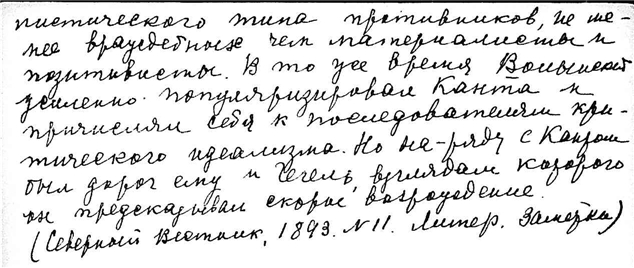 пистического типа противников, не ме-
нее враждебных чем материалисты и
позитивисты. В то же время Волынский
усиленно популяризировал Канта и
причислял себя к последователям кри-
тического идеализма. Но на-ряду с Кантом
был дорог ему и Гегель, взглядам которого
он предсказывал скорое возрождение.
(Северный Вестник, 1893. N 11. Литер. Заметки)